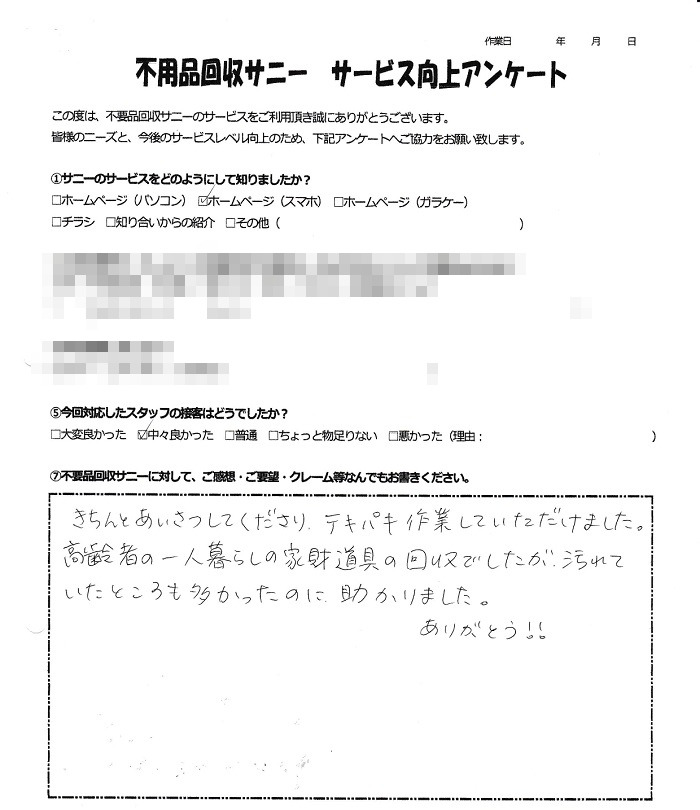 作業日 年 月 日
不用品回収サニー サービス向上アンケート
この度は、不要品回収サニーのサービスをご利用頂き誠にありがとうございます。
皆様のニーズと、今後のサービスレベル向上のため、下記アンケートへご協力をお願い致します。
①サニーのサービスをどのようにして知りましたか?
□ホームページ（パソコン） ☑ホームページ（スマホ） □ホームページ（ガラケー）
□チラシ □知り合いからの紹介 □その他（ ）
⑤今回対応したスタッフの接客はどうでしたか?
□大変良かった ☑中々良かった □普通 □ちょっと物足りない □悪かった（理由： ）
⑦不要品回収サニーに対して、ご感想・ご要望・クレーム等なんでもお書きください。
きちんとあいさつしてくださり、テキパキ作業していただけました。
高齢者の一人暮らしの家財道具の回収でしたが、汚れて
いたところも多かったのに、助かりました。
ありがとう!!